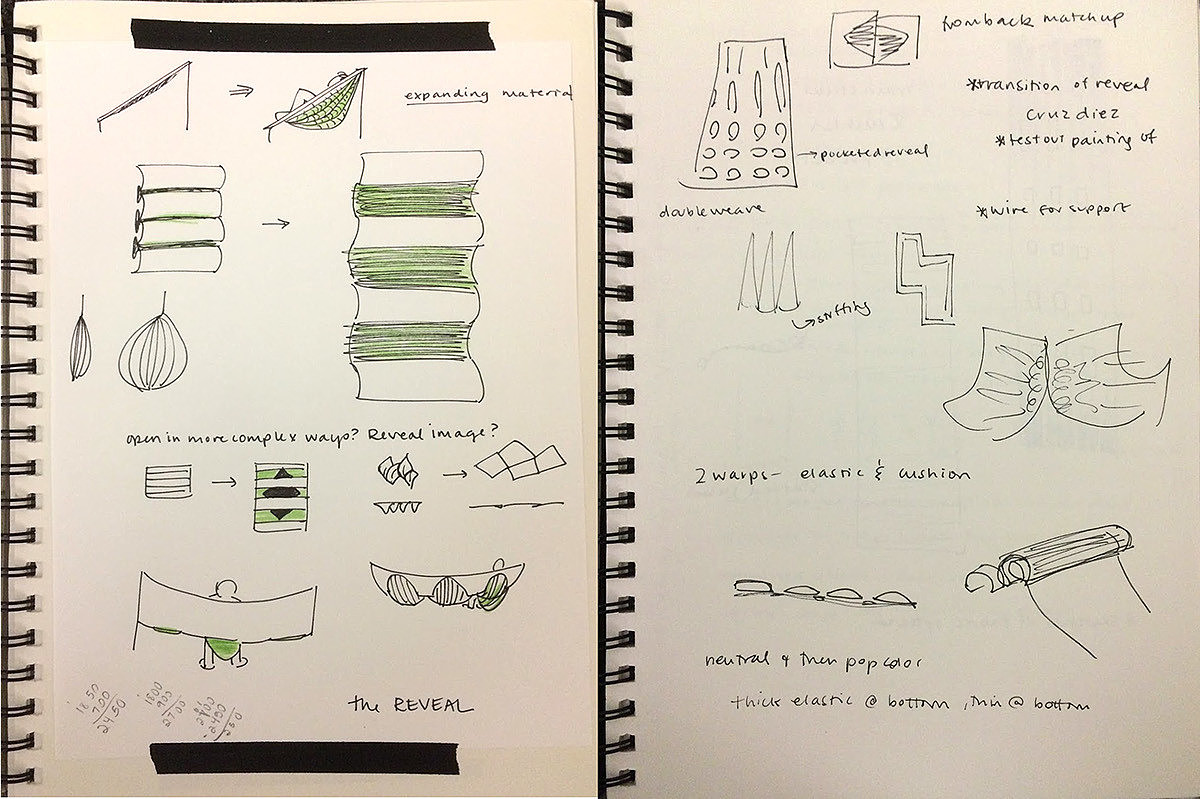 expanding material
open in more complex ways? Reveal image?
the REVEAL
1850
700
2450
1800
900
2700
2700
2450
250
fromback matchup
*transition of reveal
cruz diez
*test out painting of
pocketed reveal
double weave
*wire for support
2 warps - elastic & cushion
neutral & then pop color
thick elastic @ bottom, thin @ bottom